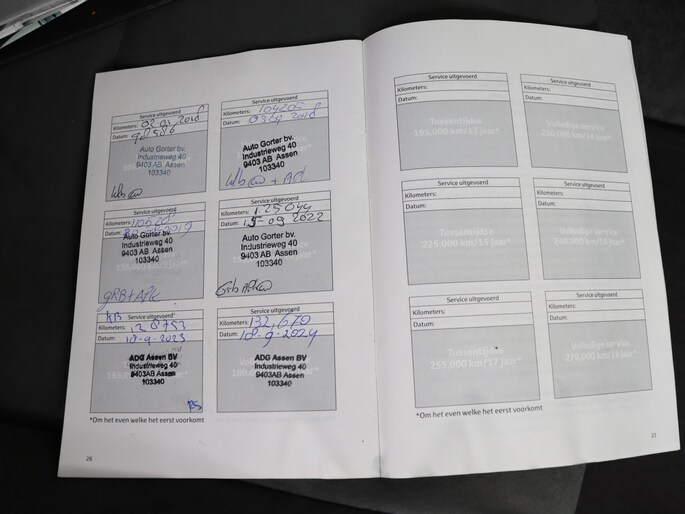 Service uitgevoerd
Kilometers: 02.01.2018
Datum: 98586
Auto Gorter bv.
Industrieweg 40
9403 AB Assen
103340
Service uitgevoerd
Kilometers: 104205
Datum:
Auto Gorter bv.
Industrieweg 40
9403 AB Assen
103340
Service uitgevoerd
Kilometers:
Datum:
Auto Gorter bv.
Industrieweg 40
9403 AB Assen
103340
GRB+APK
Service uitgevoerd
Kilometers: 125044
Datum: 15-09-2022
Auto Gorter bv.
Industrieweg 40
9403 AB Assen
103340
Service uitgevoerd
Kilometers: 128753
Datum: 18-9-2023
ADG Assen BV
Industrieweg 40
9403AB Assen
103340
Service uitgevoerd
Kilometers: 132,670
Datum: 18-9-2024
ADG Assen BV
Industrieweg 40
9403AB Assen
103340
*Om het even welke het eerst voorkomt
26
Service uitgevoerd
Kilometers:
Datum:
Tussentijdse
195,000 km/13 jaar*
Service uitgevoerd
Kilometers:
Datum:
Volledige service
210,000 km/14 jaar*
Service uitgevoerd
Kilometers:
Datum:
Tussentijdse
225,000 km/15 jaar*
Service uitgevoerd
Kilometers:
Datum:
Volledige service
240,000 km/16 jaar*
Service uitgevoerd
Kilometers:
Datum:
Tussentijdse
255,000 km/17 jaar*
Service uitgevoerd
Kilometers:
Datum:
Volledige service
270,000 km/18 jaar*
*Om het even welke het eerst voorkomt
27